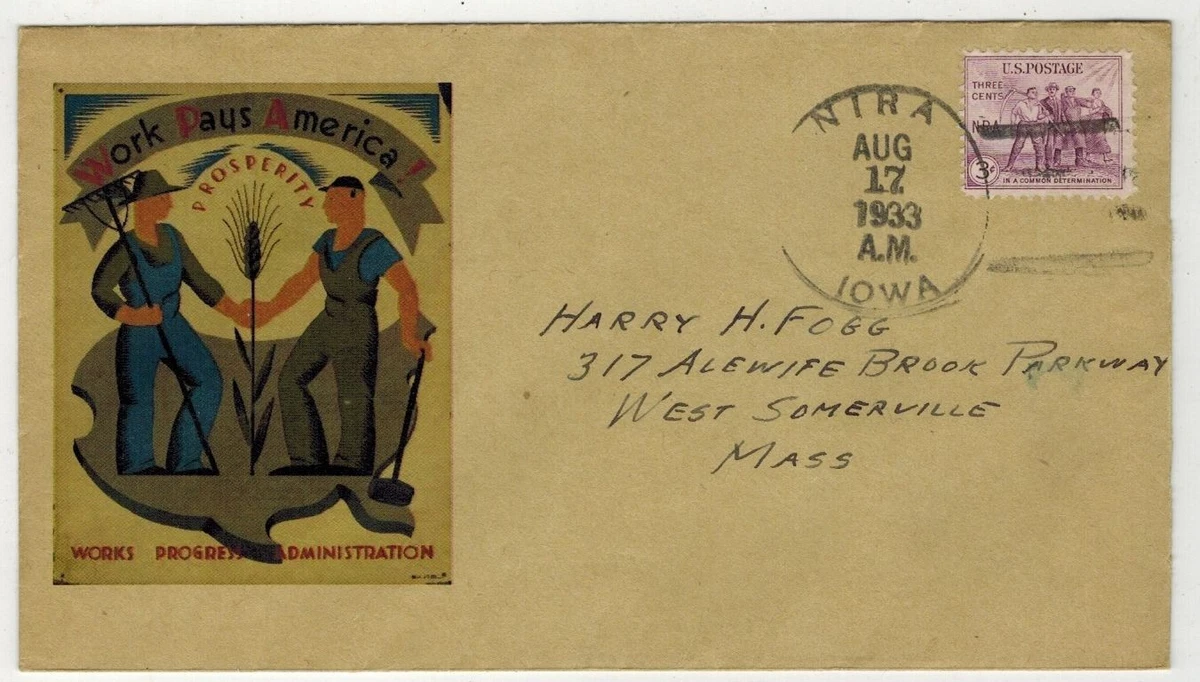 Work Pays America!
PROSPERITY
WORKS PROGRESS ADMINISTRATION
NIRA
AUG
17
1933
A.M.
IOWA
U.S. POSTAGE
THREE
CENTS
NRA
3¢
IN A COMMON DETERMINATION
HARRY H. FOGG
317 ALEWIFE BROOK PARKWAY
WEST SOMERVILLE
MASS